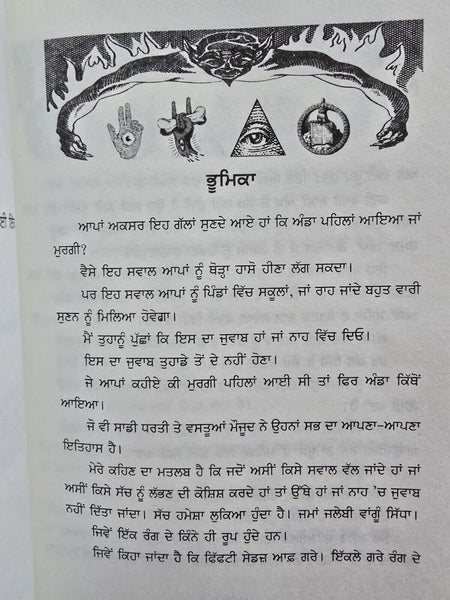 ਭੂਮਿਕਾ
ਆਪਾਂ ਅਕਸਰ ਇਹ ਗੱਲਾਂ ਸੁਣਦੇ ਆਏ ਹਾਂ ਕਿ ਅੰਡਾ ਪਹਿਲਾਂ ਆਇਆ ਜਾਂ
ਮੁਰਗੀ?
ਵੈਸੇ ਇਹ ਸਵਾਲ ਆਪਾਂ ਨੂੰ ਥੋੜ੍ਹਾ ਹਾਸੋ ਹੀਣਾ ਲੱਗ ਸਕਦਾ।
ਪਰ ਇਹ ਸਵਾਲ ਆਪਾਂ ਨੂੰ ਪਿੰਡਾਂ ਵਿੱਚ ਸਕੂਲਾਂ, ਜਾਂ ਰਾਹ ਜਾਂਦੇ ਬਹੁਤ ਵਾਰੀ
ਸੁਣਨ ਨੂੰ ਮਿਲਿਆ ਹੋਵੇਗਾ।
ਮੈਂ ਤੁਹਾਨੂੰ ਪੁੱਛਾਂ ਕਿ ਇਸ ਦਾ ਜੁਵਾਬ ਹਾਂ ਜਾਂ ਨਾਹ ਵਿੱਚ ਦਿਓ।
ਇਸ ਦਾ ਜੁਵਾਬ ਤੁਹਾਡੇ ਤੋਂ ਦੇ ਨਹੀਂ ਹੋਣਾ।
ਜੇ ਆਪਾਂ ਕਹੀਏ ਕੀ ਮੁਰਗੀ ਪਹਿਲਾਂ ਆਈ ਸੀ ਤਾਂ ਫਿਰ ਅੰਡਾ ਕਿੱਥੋਂ
ਆਇਆ।
ਜੋ ਵੀ ਸਾਡੀ ਧਰਤੀ ਤੇ ਵਸਤੂਆਂ ਮੌਜੂਦ ਨੇ ਉਹਨਾਂ ਸਭ ਦਾ ਆਪਣਾ-ਆਪਣਾ
ਇਤਿਹਾਸ ਹੈ।
ਮੇਰੇ ਕਹਿਣ ਦਾ ਮਤਲਬ ਹੈ ਕਿ ਜਦੋਂ ਅਸੀਂ ਕਿਸੇ ਸਵਾਲ ਵੱਲ ਜਾਂਦੇ ਹਾਂ ਜਾਂ
ਅਸੀਂ ਕਿਸੇ ਸੱਚ ਨੂੰ ਲੱਭਣ ਦੀ ਕੋਸ਼ਿਸ਼ ਕਰਦੇ ਹਾਂ ਤਾਂ ਉੱਥੇ ਹਾਂ ਜਾਂ ਨਾਹ 'ਚ ਜੁਵਾਬ
ਨਹੀਂ ਦਿੱਤਾ ਜਾਂਦਾ। ਸੱਚ ਹਮੇਸ਼ਾ ਲੁਕਿਆ ਹੁੰਦਾ ਹੈ। ਜਮਾਂ ਜਲੇਬੀ ਵਾਂਗੂੰ ਸਿੱਧਾ।
ਜਿਵੇਂ ਇੱਕ ਰੰਗ ਦੇ ਕਿੰਨੇ ਹੀ ਰੂਪ ਹੁੰਦੇ ਹਨ।
ਜਿਵੇਂ ਕਿਹਾ ਜਾਂਦਾ ਹੈ ਕਿ ਫਿੱਫਟੀ ਸੇਡਜ਼ ਆਫ਼ ਗਰੇ। ਇੱਕਲੇ ਗਰੇ ਰੰਗ ਦੇ